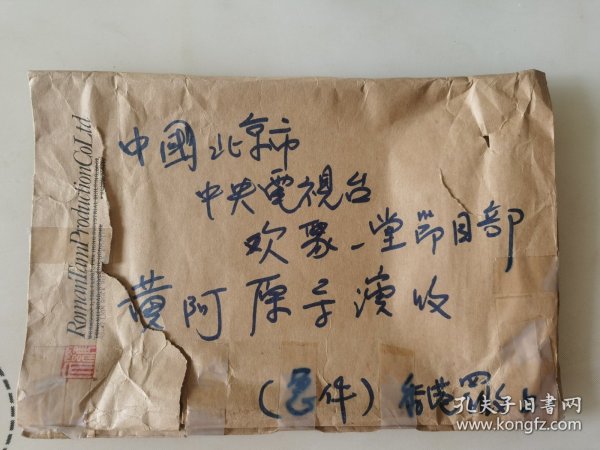 RomanTamProductionCoLtd
中國北京市
中央電視台
欢聚一堂節目部
黄阿原导演收
(急件) 香港罗
孔夫子旧书网
www.kongfz.com